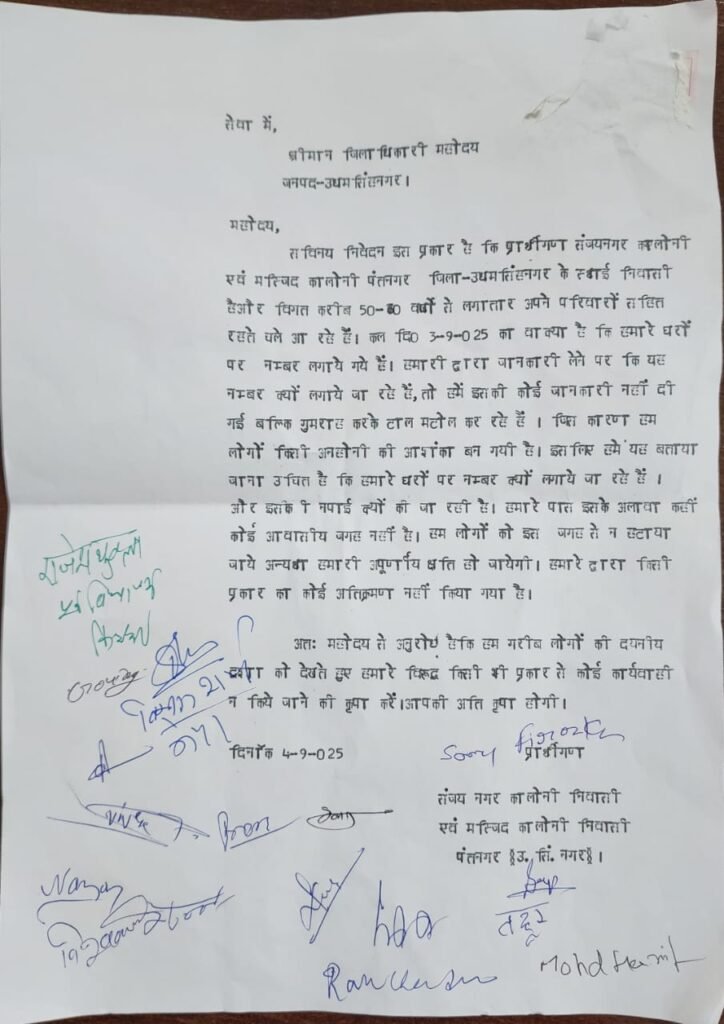 सेवा में,
श्रीमान जिलाधिकारी महोदय
जनपद-उधमसिंहनगर।
महोदय,
सविनय निवेदन इस प्रकार है कि प्रार्थीगण संजयनगर कालोनी
एवं मस्जिद कालोनी पंतनगर जिला-उधमसिंहनगर के स्थाई निवासी
हैऔर विगत करीब 50-60 वर्षों से लगातार अपने परिवारों सहित
रहते चले आ रहे हैं। कल दि0 3-9-025 का वाक्या है कि हमारे घरों
पर नम्बर लगाये गये हैं। हमारी द्वारा जानकारी लेने पर कि यह
नम्बर क्यों लगाये जा रहे हैं,तो हमें इसकी कोई जानकारी नहीं दी
गई बल्कि गुमराह करके टाल मटोल कर रहे हैं । जिस कारण हम
लोगों किसी अनहोनी की आशंका बन गयी है। इसलिए हमें यह बताया
जाना उचित है कि हमारे घरों पर नम्बर क्यों लगाये जा रहे हैं ।
और इसकी नपाई क्यों की जा रही है। हमारे पास इसके अलावा कहीं
कोई आवासीय जगह नहीं है। हम लोगों को इस जगह से न हटाया
जाये अन्यथा हमारी अपूर्णीय क्षति हो जायेगी। हमारे द्वारा किसी
प्रकार का कोई अतिक्रमण नहीं किया गया है।
अतः महोदय से अनुरोध हैकि हम गरीब लोगों की दयनीय
दशा को देखते हुए हमारे विरूद्ध किसी भी प्रकार से कोई कार्यवाही
न किये जाने की कृपा करें।आपकी अति कृपा होगी।
दिनाँक 4-9-025
प्रार्थीगण
संजय नगर कालोनी निवासी
एवं मस्जिद कालोनी निवासी
पंतनगर §उ. सिं. नगर§।
Mohd